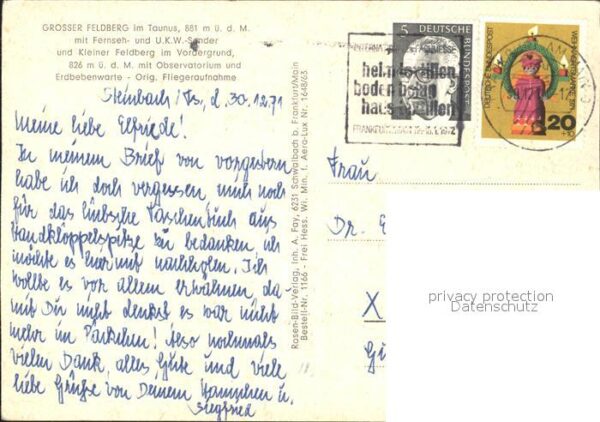 GROSSER FELDBERG im Taunus, 881 m ü. d. M.
mit Fernseh- und U.K.W.-Sender
und Kleiner Feldberg im Vordergrund,
826 m ü. d. M. mit Observatorium und
Erdbebenwarte - Orig. Fliegeraufnahme
Steinbach/Ts, d. 30.12.71
Meine liebe Elfriede!
In meinem Brief von vorgestern
habe ich doch vergessen mich noch
für das hübsche Taschentuch aus
Handklöppelspitze zu bedanken ich
möchte es hiermit nachholen. Ich
wollte es vor allem erwähnen, da
mit Du nicht denkst es war nicht
mehr im Päckchen! Also nochmals
vielen Dank, alles Gute und viele
liebe Grüße von Deinem Hannchen u.
Siegfried
Rosen-Bild-Verlag, Inh. A. Fay, 6231 Schwalbach b. Frankfurt/Main
Bestell-Nr. 1166 - Frei Hess. Wi. Min. f. Aero-Lux Nr. 1648/63
5
DEUTSCHE BUNDESPOST
heimtextilien
bodenbelag
haustextilien
FRANKFURT
DEUTSCHE BUNDESPOST
20
+10
Frau
Dr. E
X
privacy protection
Datenschutz